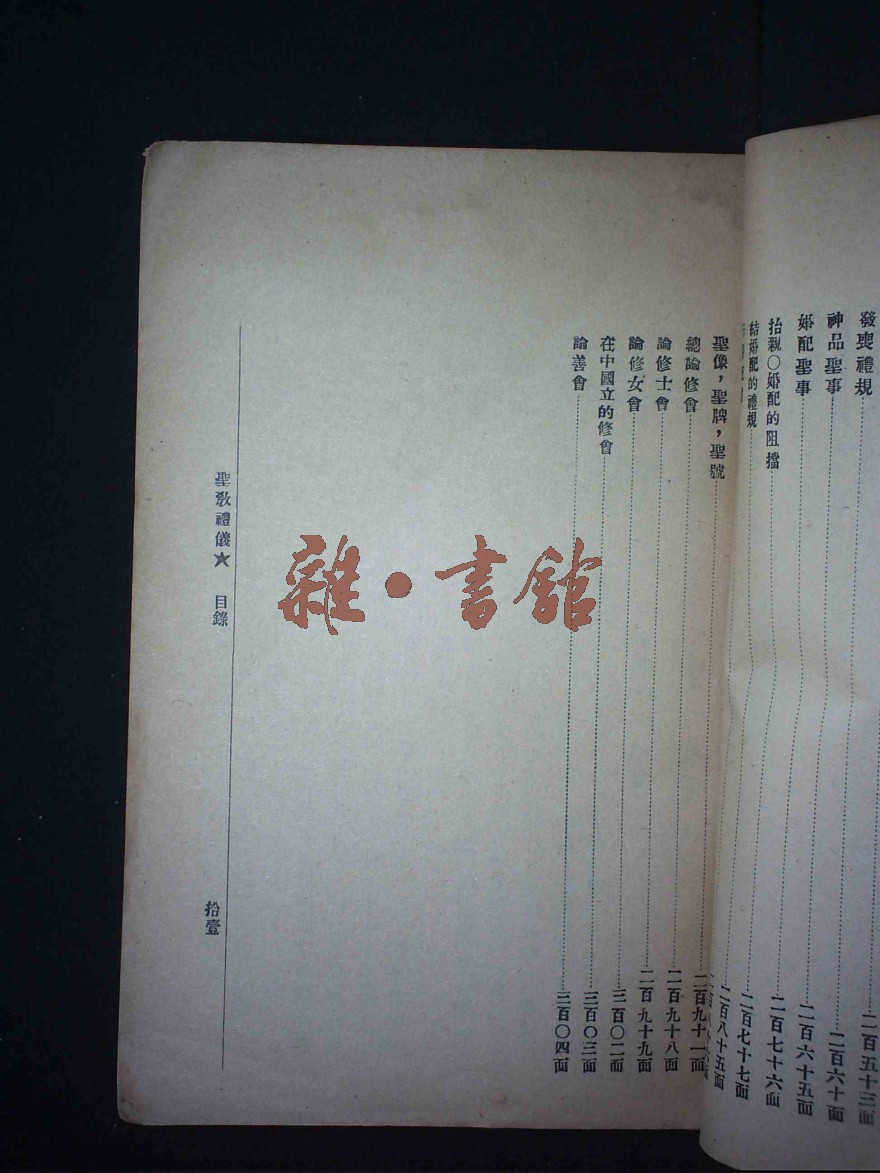 發喪禮規……二百五十三面
神品聖事……二百六十面
婚配聖事……二百六十五面
抬親〇婚配的阻擋……二百七十六面
結婚配的禮規……二百七十七面
二百八十五面
聖像，聖牌，聖號……二百九十一面
總論修會……二百九十八面
論修士會……二百九十九面
論修女會……三百〇二面
在中國立的修會……三百〇三面
論善會……三百〇四面
聖教禮儀★ 目錄 拾壹
雜·書館